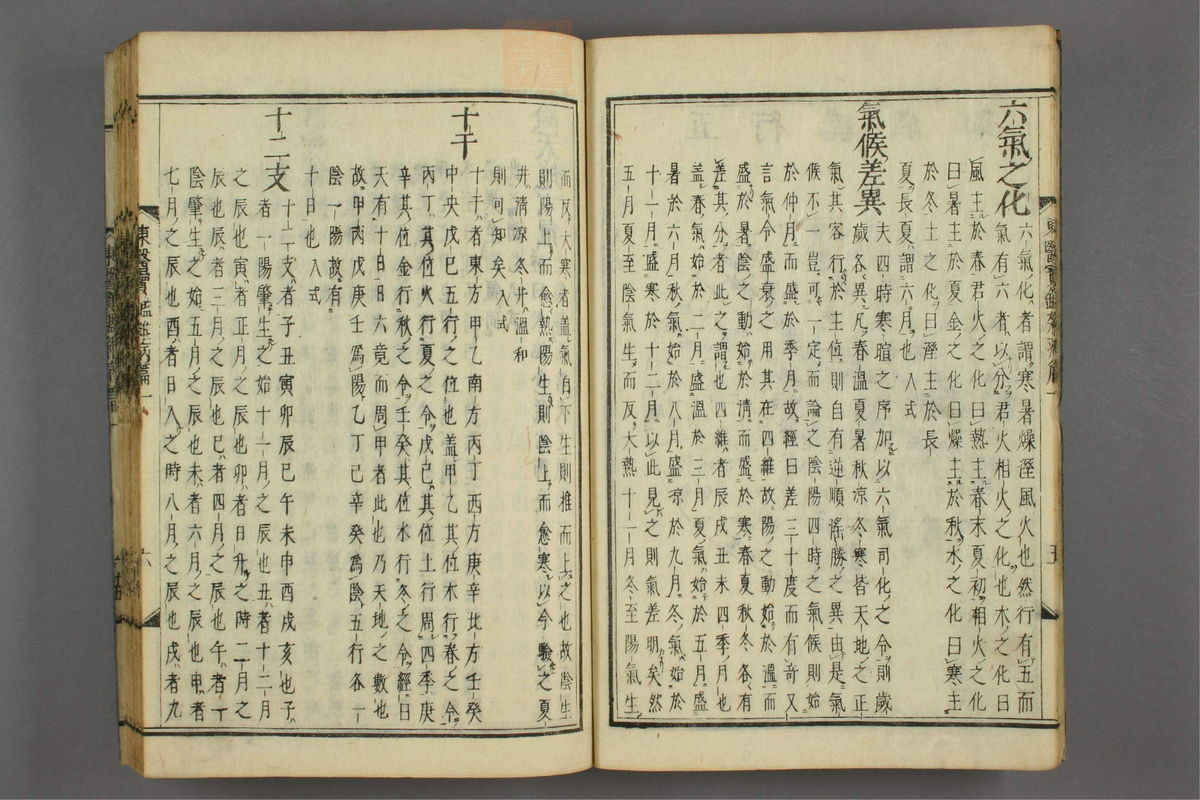 六氣之化
六氣化者謂寒暑燥溼風火也然行有五而
氣有六者以分君火相火之化也木之化曰
風主於春君火之化曰熱主春末夏初相火之化
曰暑主於夏金之化曰燥主於秋水之化曰寒主
於冬土之化曰溼主於長
夏長夏謂六月也 入式
氣候差異
夫四時寒暄之序加以六氣司化之令則歲
歲各異凡春溫夏暑秋涼冬寒皆天地之正
氣其客行於主位則自有逆順淫勝之異由是氣
候不一豈可一定而論之陰陽四時之氣候則始
於仲月而盛於季月故經曰差三十度而有奇又
言氣令盛衰之用其在四維故陽之動始於溫而
盛於暑陰之動始於清而盛於寒春夏秋冬各有
差其分者此之謂也四維者辰戌丑未四季月也
盖春氣始於二月盛溫於三月夏氣始於五月盛
暑於六月秋氣始於八月盛涼於九月冬氣始於
十一月盛寒於十二月以此見之則氣差明矣然
五月夏至陰氣生而反大熱十一月冬至陽氣生
而反大寒者盖氣自下生則推而上之也故陰生
則陽上而愈熱陽生則陰上而愈寒以今驗之夏
井清涼冬井溫和
則可知矣入式
十干
十干者東方甲乙南方丙丁西方庚辛北方壬癸
中央戊巳五行之位也盖甲乙其位木行春之令
丙丁其位火行夏之令戊己其位土行周四季庚
辛其位金行秋之令壬癸其位水行冬之令經曰
天有十日日六竟而周甲者此也乃天地之數也
故甲丙戊庚壬爲陽乙丁己辛癸爲陰五行各一
陰一陽故有
十日也 入式
十二支
十二支者子丑寅卯辰巳午未申酉戌亥也子
者一陽肇生之始十一月之辰也丑者十二月
之辰也寅者正月之辰也卯者日升之時二月之
辰也辰者三月之辰也巳者四月之辰也午者一
陰肇生之始五月之辰也未者六月之辰也申者
七月之辰也酉者日入之時八月之辰也戌者九
東醫寶鑑雜病篇一
六